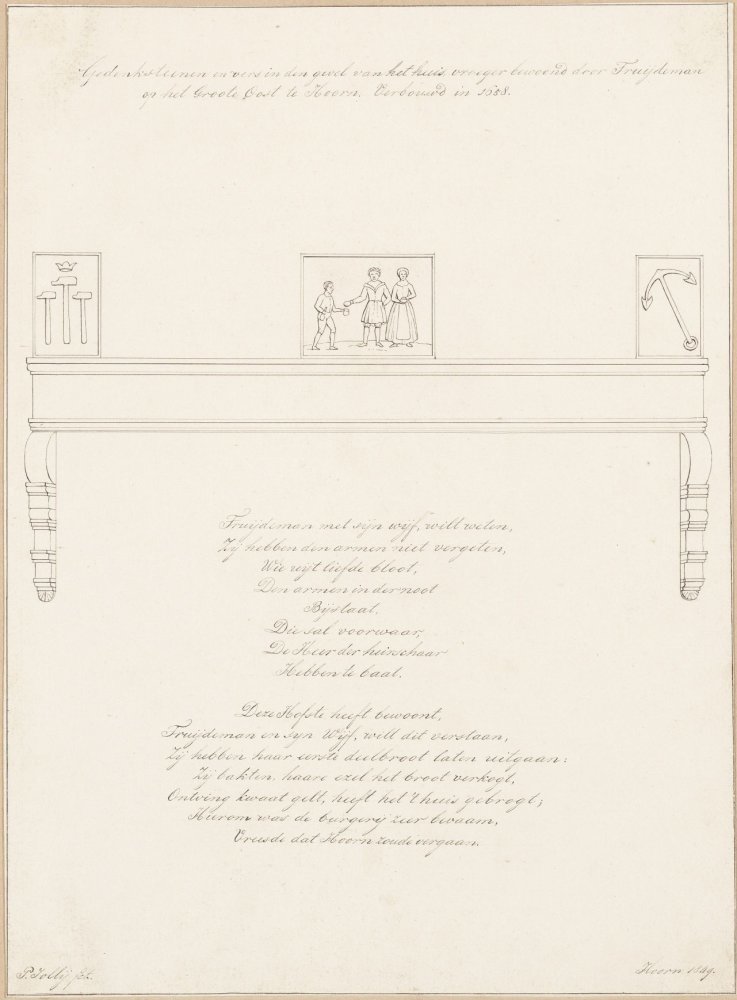 Gedenksteenen en vers in den gevel van het huis, vroeger bewoond door Truijdeman
op het Groote Oost te Hoorn. Verbouwd in 1658.
Truijdeman met sijn wijf, wilt weten,
Zij hebben den armen niet vergeten,
Wie uijt liefde bloot,
Den armen in der noot
Bijstaat.
Die sal voorwaar,
De Heer der heirschaar
Hebben te baat.
Deze Hofste heeft bewoont,
Truijdeman en syn Wijf, wilt dit verstaan,
Zij hebben haar eerste deelbroot laten uitgaan:
Zij bakten, haare ezel het broot verkogt,
Ontving kwaat gelt, heeft het 't huis gebrogt;
Hierom was de burgerij zeer bevaam,
Vreesde dat Hoorn zoude vergaan.
P. Jollij fct.
Hoorn 1849.